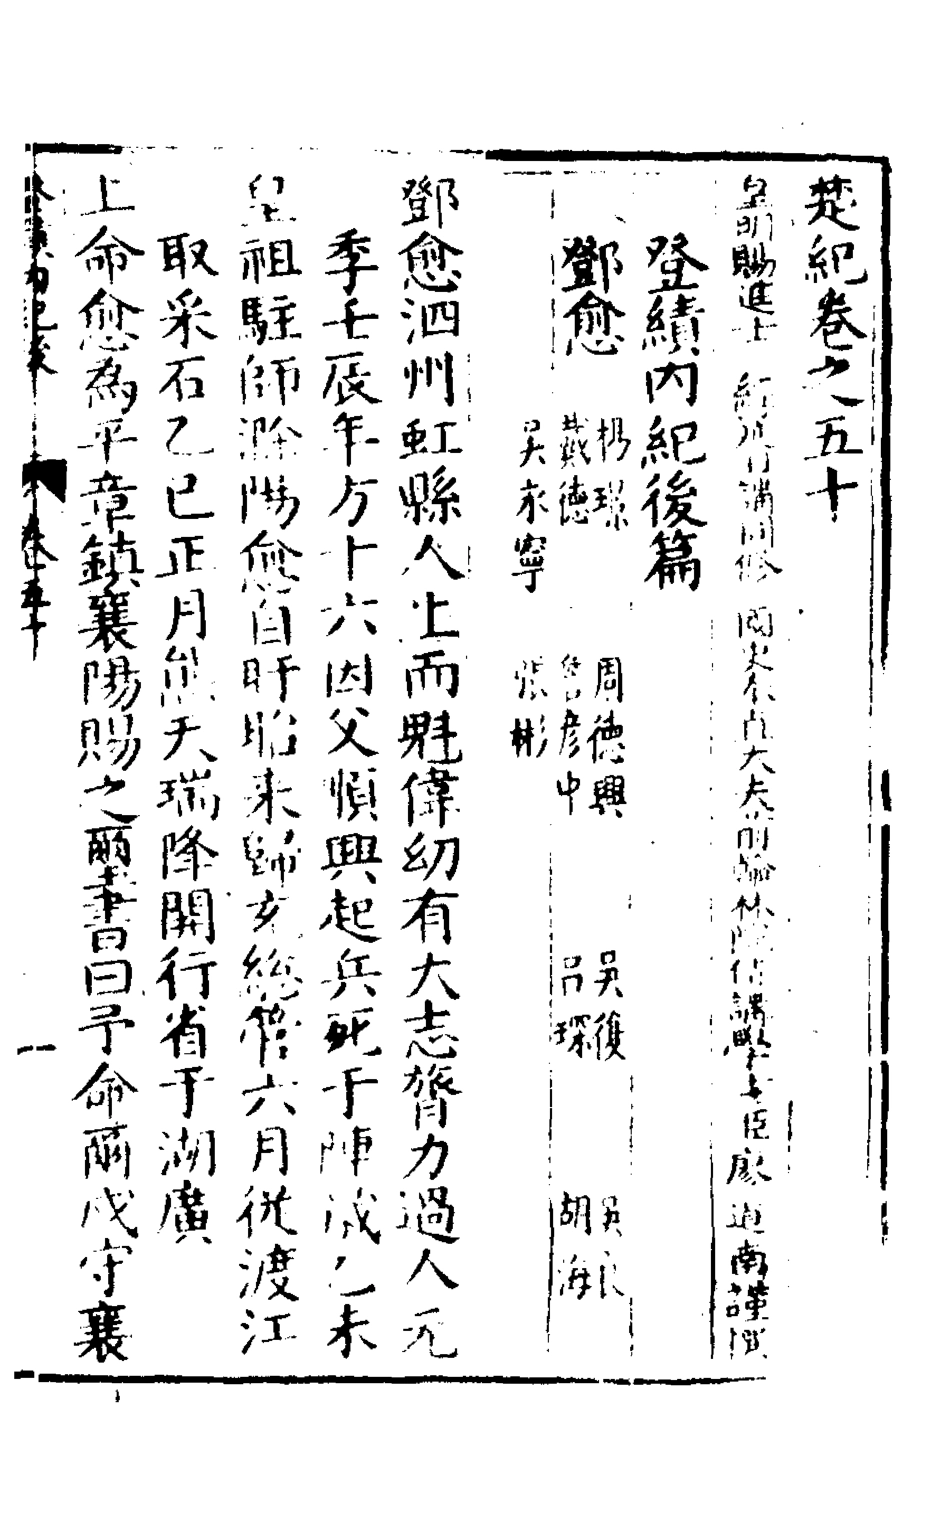 楚紀卷之五十
皇明賜進士 經筵講同修 國史奉直大夫前翰林院侍講學士臣廖道南謹撰
登績内紀後篇
鄧愈 楊璟 周德興 吳復 吳良
戴德 詹彦中 吕琛 胡海
吴永寧 張彬
鄧愈泗州虹縣人生而魁偉幼有大志膂力過人元
季壬辰年方十六因父順興起兵死于陣歲乙未
皇祖駐師滁陽愈自盱眙来歸充總管六月従渡江
取采石乙巳正月熊天瑞降開行省于湖廣
上命愈為平章鎮襄陽賜之爾書曰予命爾戍守襄
登績内紀後 卷五十 一